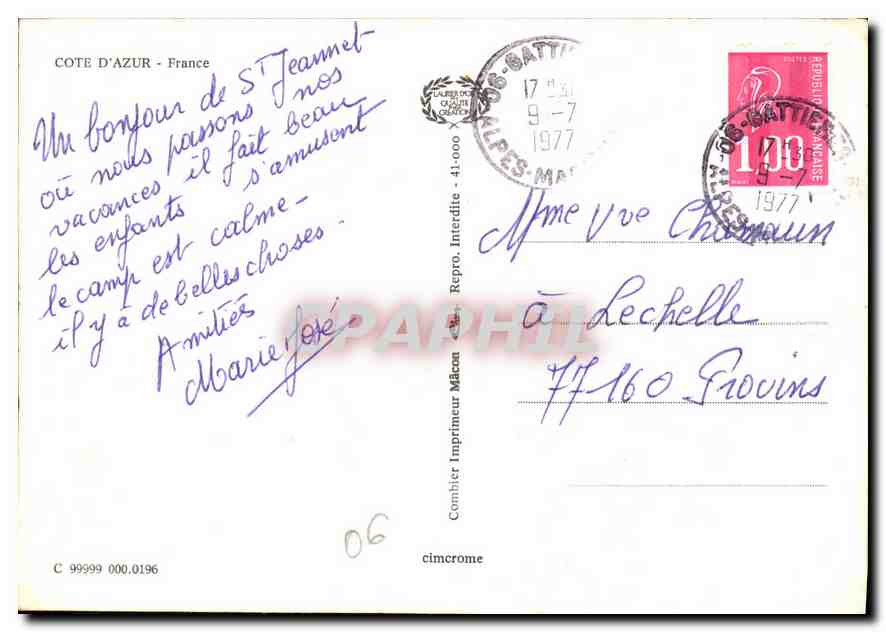 COTE D'AZUR - France
Un bonjour de St Jeannet
où nous passons nos
vacances il fait beau
les enfants s'amusent
le camp est calme -
il y à de belles choses -
Amitiés
Marie José
LAURIER D'OR
QUALITÉ
CREATION
06-GATTIÈ
17 H 30
9 -7
1977
ALPES-MAR
POSTES
REPUBLIQUE FRANÇAISE
1,00
06-GATTIE
17 H 30
9 -7
1977
ALPES-
Mme Vve
à Lechelle
77160 Provins
Combier Imprimeur Mâcon Repro. Interdite - 41-000 X
DELCAMPE